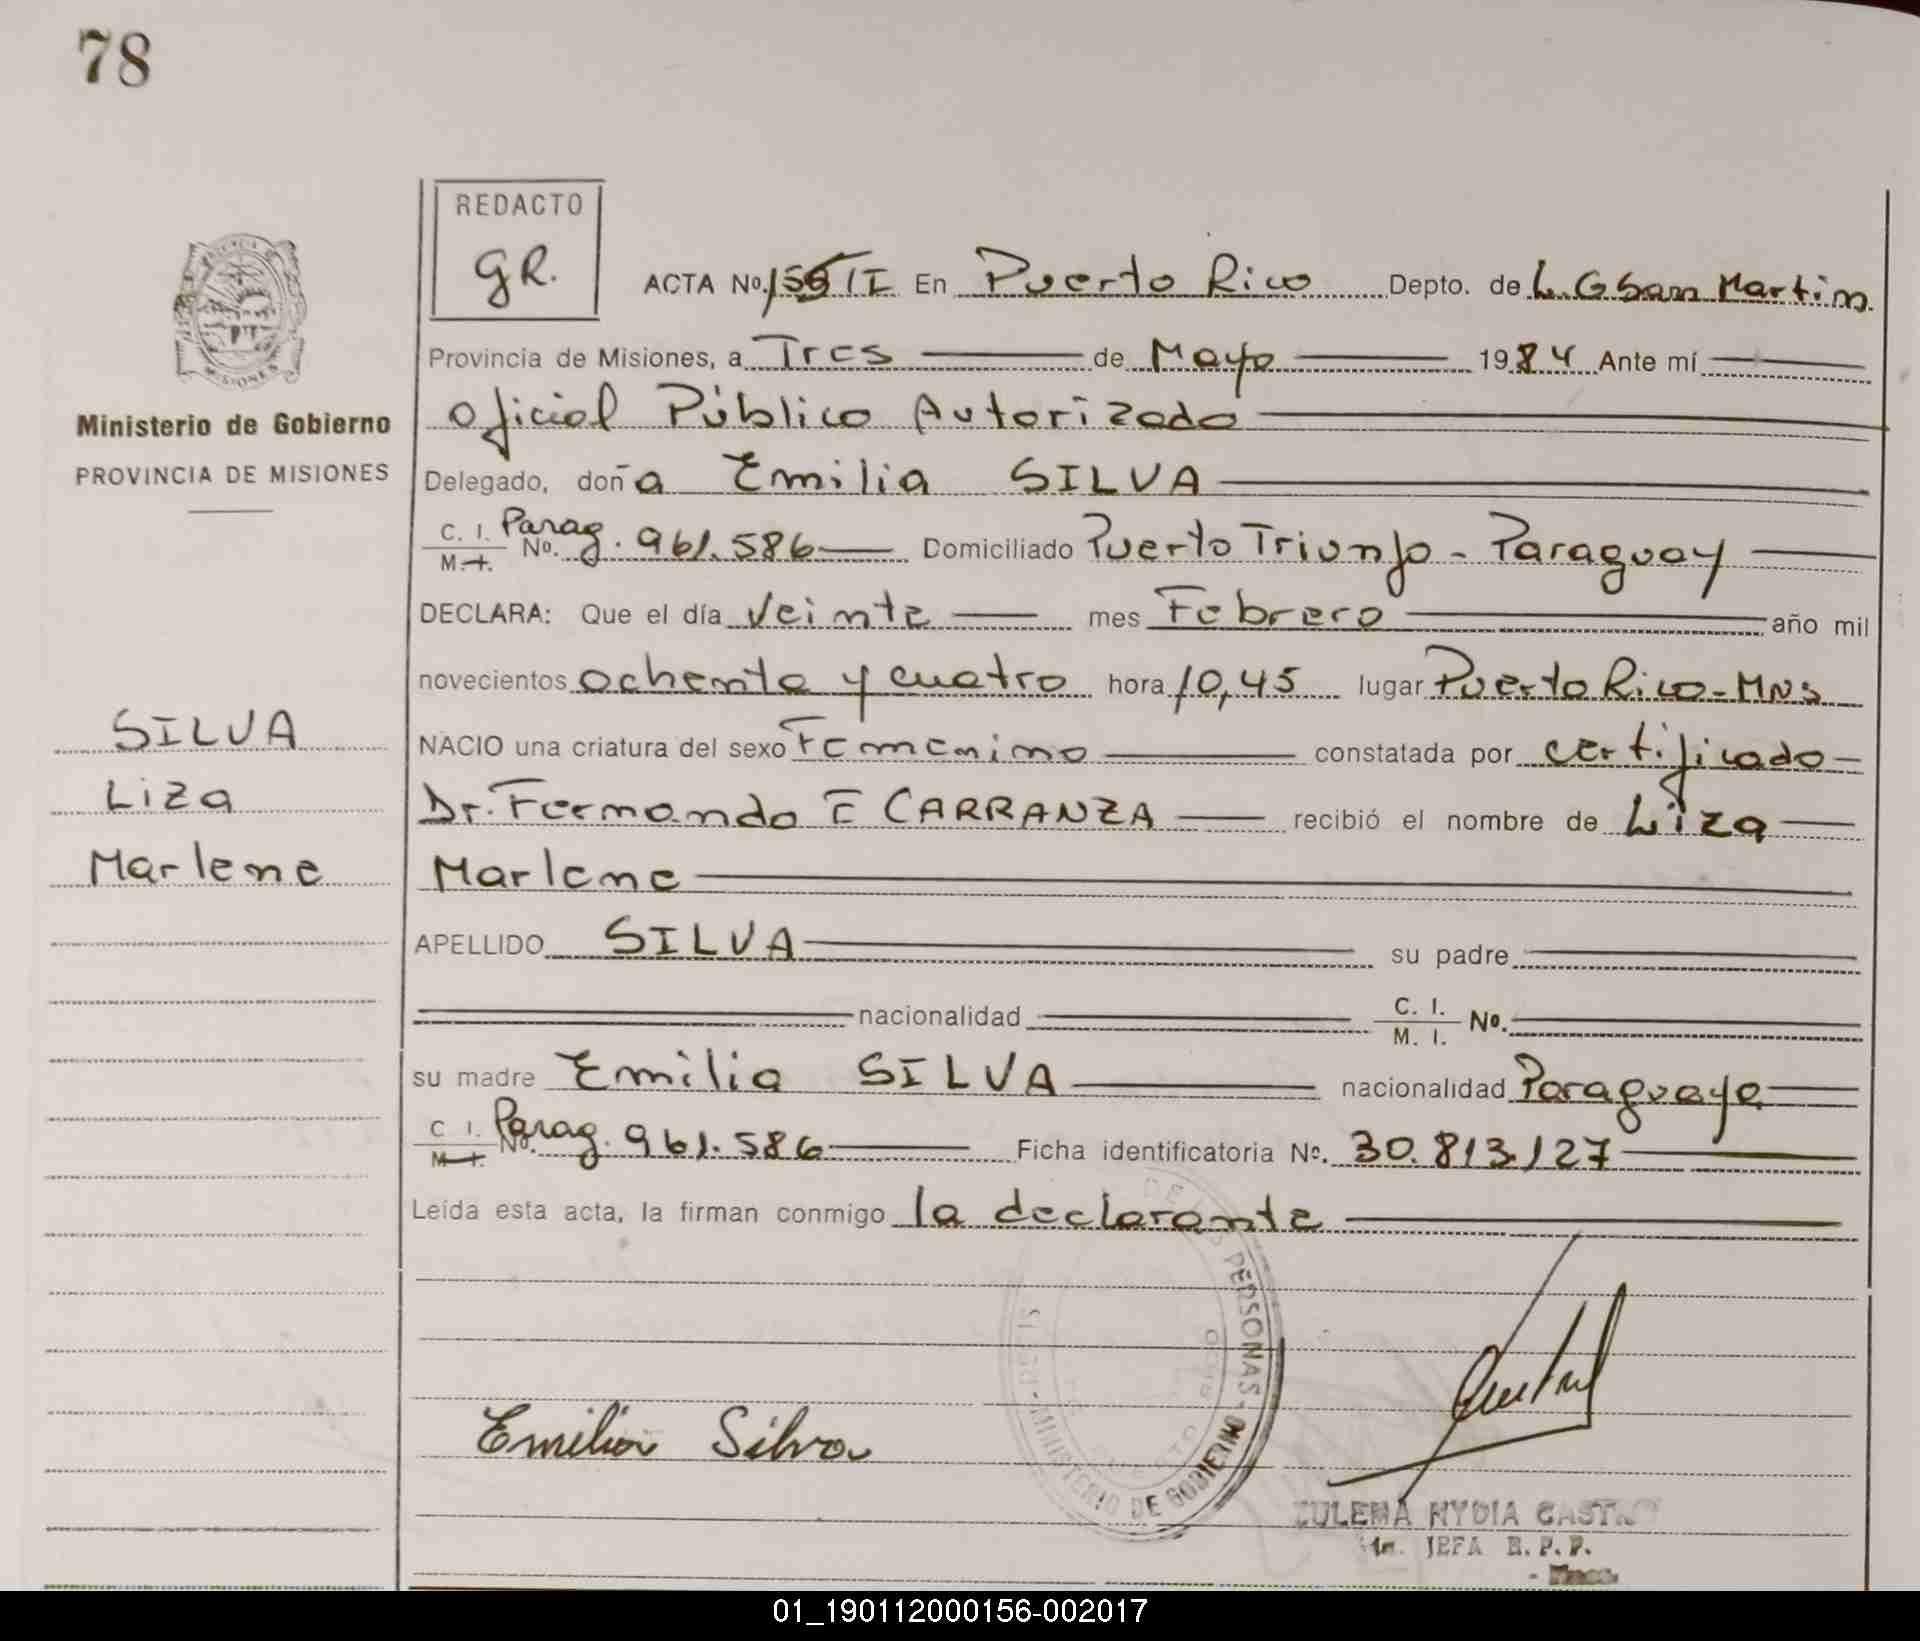 78
REDACTO
GR.
ACTA No. 156 TI En Puerto Rico Depto. de L. G San Martin
Provincia de Misiones, a Tres de Mayo 1984 Ante mí
Oficial Público Autorizado
Delegado, doña Emilia SILVA
C. I. M. I. No. Parag. 961.586 Domiciliado Puerto Triunfo - Paraguay
DECLARA: Que el día veinte mes Febrero año mil
novecientos ochenta y cuatro hora 10,45 lugar Puerto Rico - MNS
NACIO una criatura del sexo Femenino constatada por certificado
Dr. Fernando E CARRANZA recibió el nombre de Liza
Marlene
APELLIDO SILVA su padre
nacionalidad C. I. M. I. No.
su madre Emilia SILVA nacionalidad Paraguaya
C. I. M. I. No. Parag. 961.586 Ficha identificatoria No. 30.813.127
Leída esta acta, la firman conmigo la declarante
Emilia Silva
DE LAS PERSONAS - MINISTERIO DE GOBIERNO
ZULEMA NYDIA
JEFA R. P. P.
PROVINCIA
MISIONES
Ministerio de Gobierno
PROVINCIA DE MISIONES
SILVA
Liza
Marlene
01_190112000156-002017